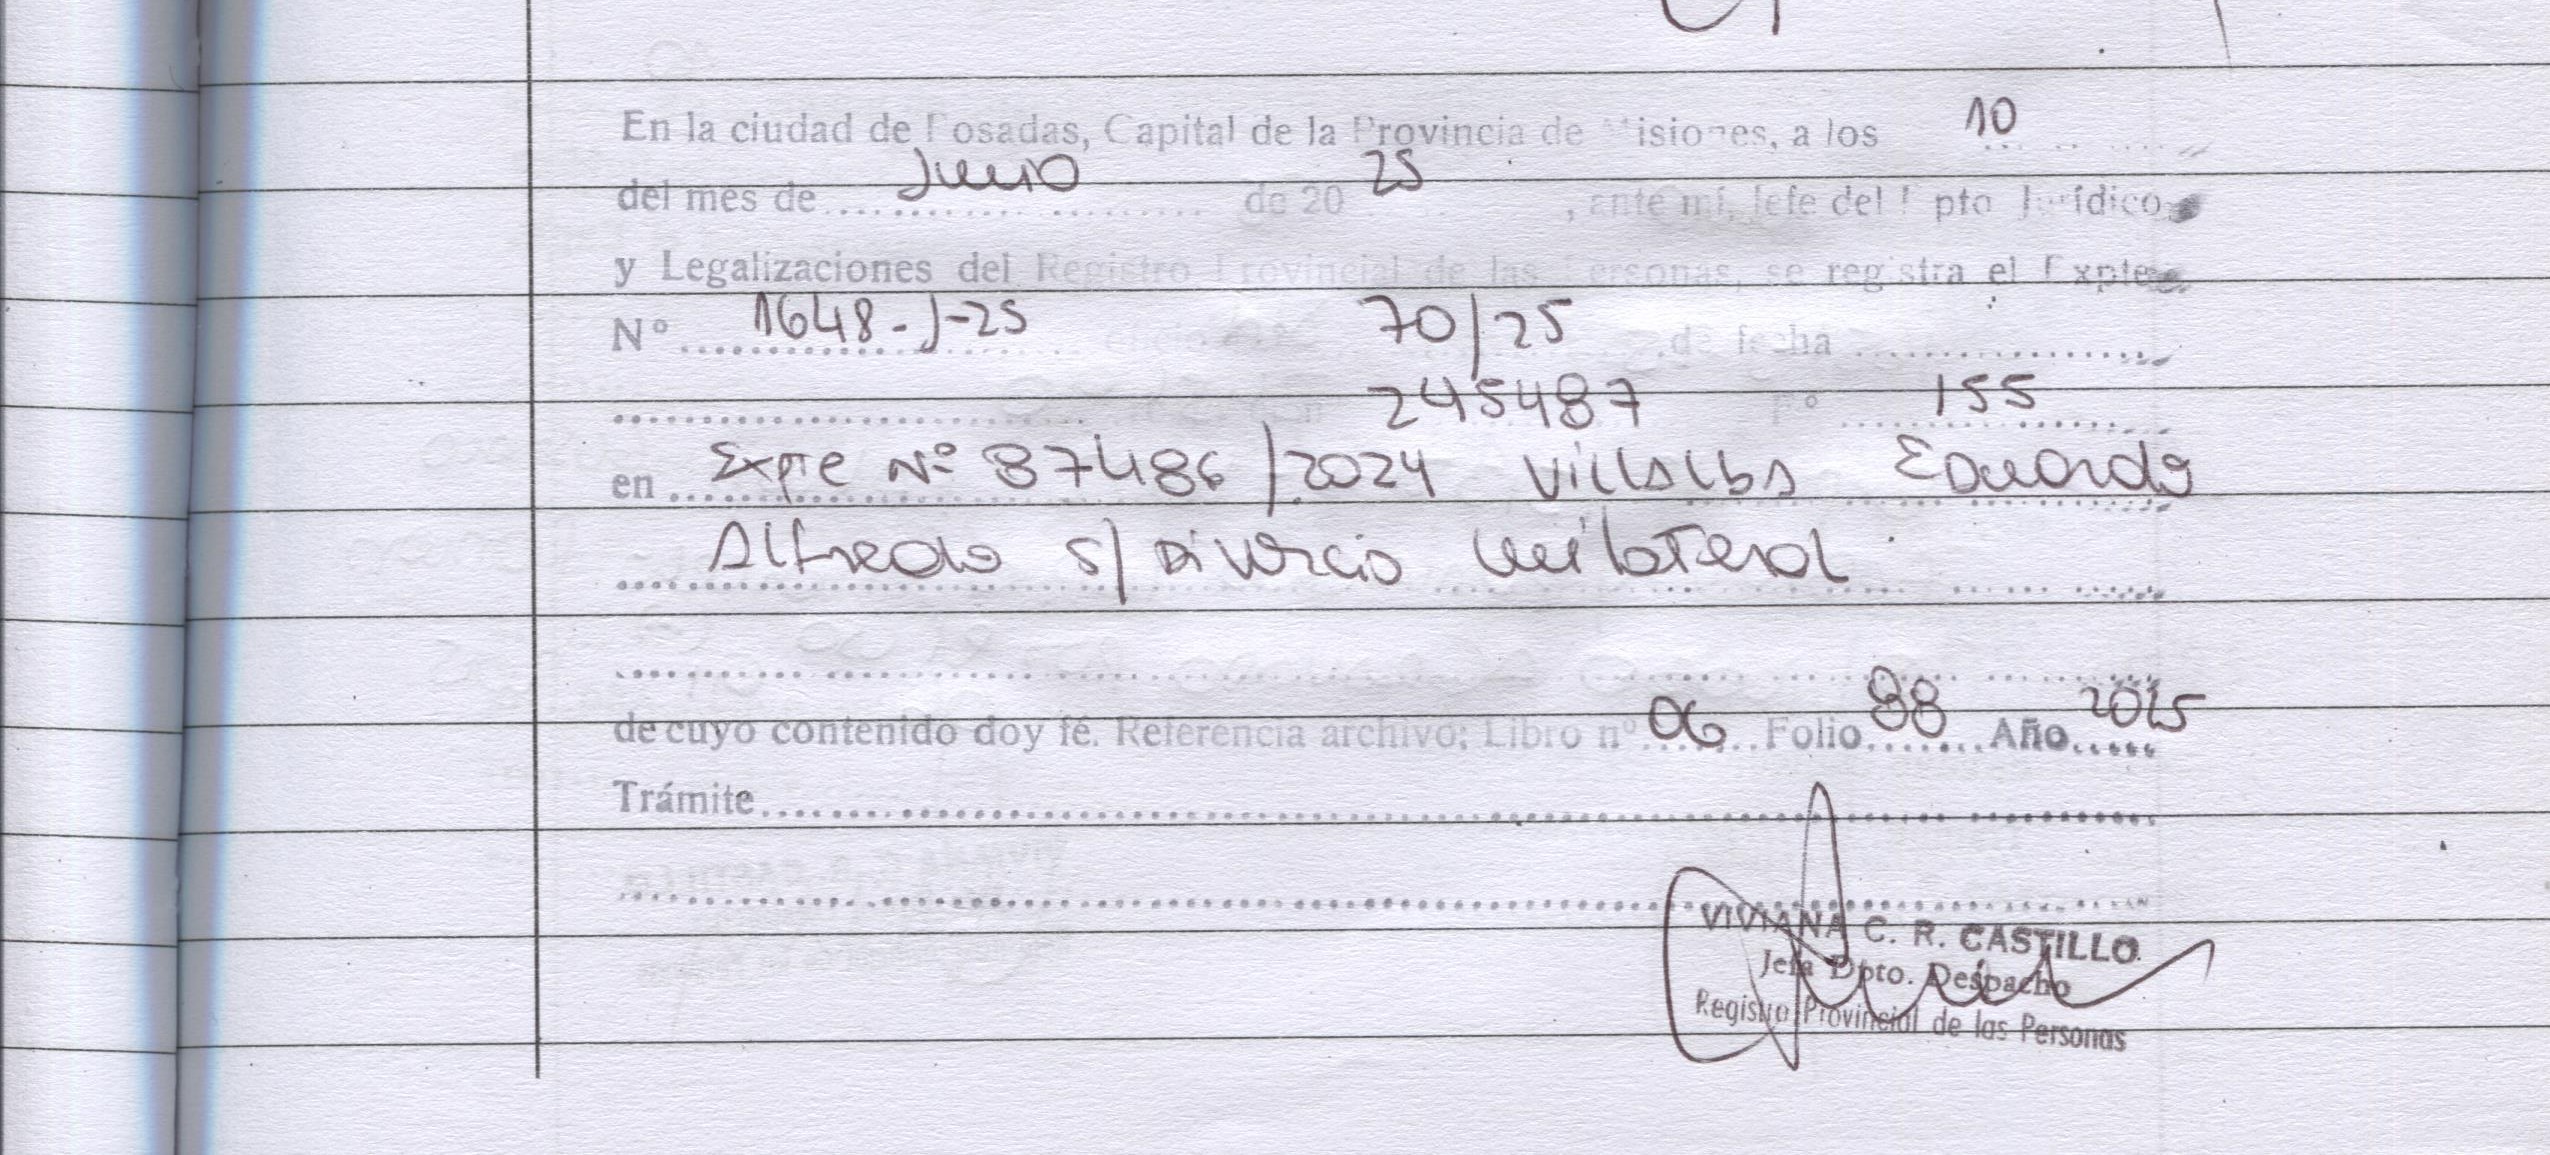 En la ciudad de Posadas, Capital de la Provincia de Misiones, a los 10
del mes de Junio de 20 25, ante mí, Jefe del Dpto Jurídico
y Legalizaciones del Registro Provincial de las Personas, se registra el Expte
Nº 1648-J-25 70/25 de fecha
245487 Fº 155
en Expte Nº 87486/2024 Villalba Eduardo
Alfredo s/ Divorcio Unilateral
de cuyo contenido doy fé. Referencia archivo: Libro nº 06 Folio 98 Año 2025
Trámite
VIVIANA C. R. CASTILLO
Jefa Dpto. Despacho
Registro Provincial de las Personas